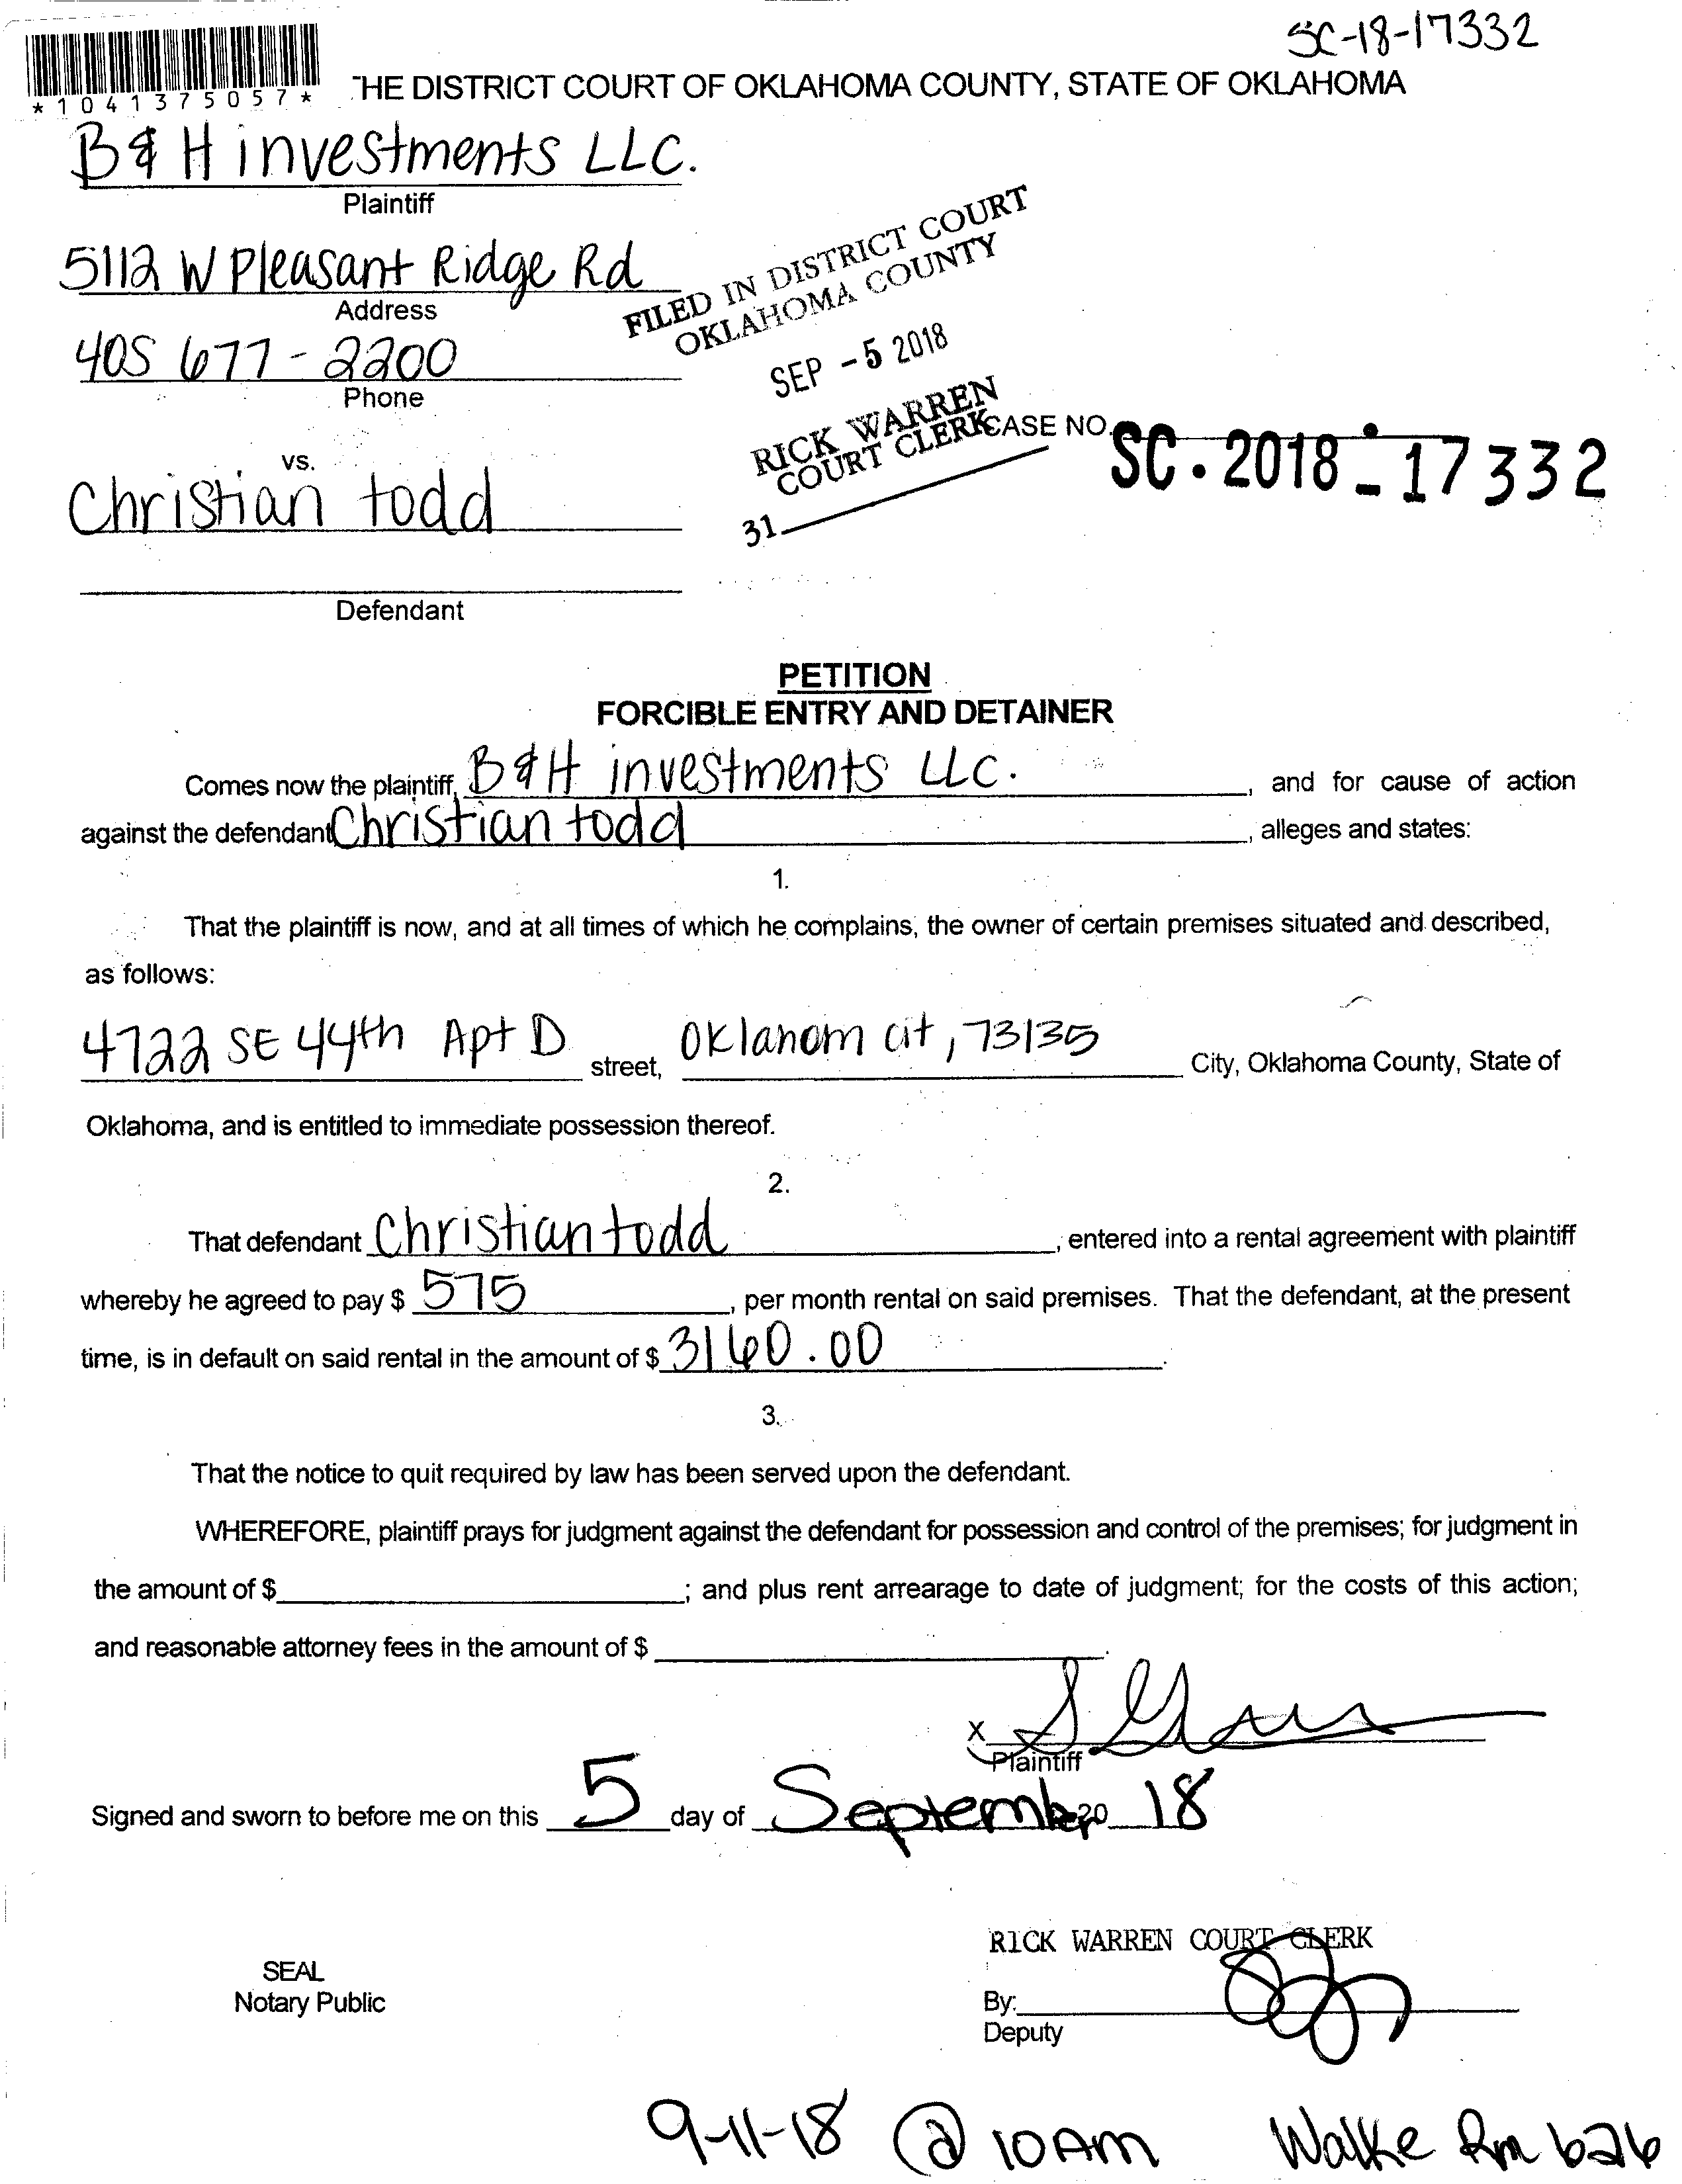 SC-18-17332
*1041375057*
THE DISTRICT COURT OF OKLAHOMA COUNTY, STATE OF OKLAHOMA
B & H investments LLC.
Plaintiff
5112 W Pleasant Ridge Rd
Address
405 677-2200
Phone
FILED IN DISTRICT COURT
OKLAHOMA COUNTY
SEP -5 2018
RICK WARREN
COURT CLERK
31
CASE NO. SC. 2018-17332
vs.
Christian todd
Defendant
PETITION
FORCIBLE ENTRY AND DETAINER
Comes now the plaintiff, B & H investments LLC. , and for cause of action
against the defendant Christian todd , alleges and states:
1.
That the plaintiff is now, and at all times of which he complains, the owner of certain premises situated and described,
as follows:
4722 SE 44th Apt D street, Oklanom cit, 73135 City, Oklahoma County, State of
Oklahoma, and is entitled to immediate possession thereof.
2.
That defendant Christian todd , entered into a rental agreement with plaintiff
whereby he agreed to pay $ 575 , per month rental on said premises. That the defendant, at the present
time, is in default on said rental in the amount of $ 3160.00 .
3.
That the notice to quit required by law has been served upon the defendant.
WHEREFORE, plaintiff prays for judgment against the defendant for possession and control of the premises; for judgment in
the amount of $ ; and plus rent arrearage to date of judgment; for the costs of this action;
and reasonable attorney fees in the amount of $ .
X
Plaintiff
Signed and sworn to before me on this 5 day of September 20 18
RICK WARREN COURT CLERK
SEAL
Notary Public
By:
Deputy
9-11-18 @ 10AM Walke Rm 626